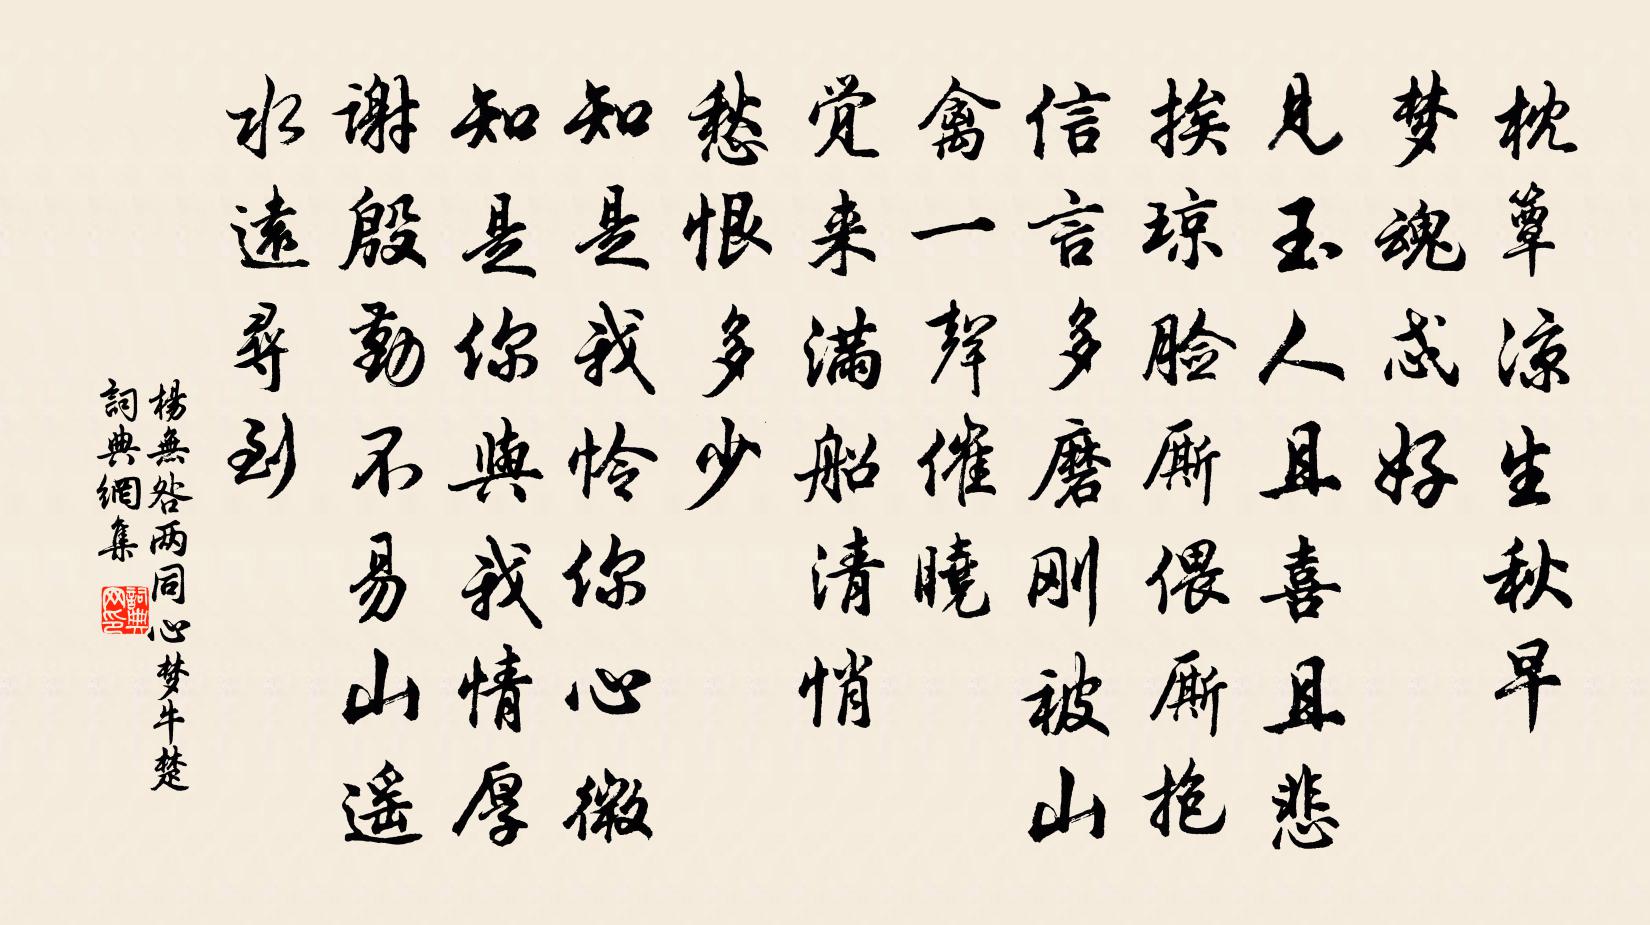 枕簟凉生秋早
梦魂忒好
见玉人且喜且悲
挨琼脸厮偎厮抱
信言多磨刚被山
禽一聲催曉
觉来满船清悄
愁恨多少
知是我怜你心微
知是你與我情厚
谢殷勤不易山遥
水遠尋到
楊無咎两同心梦牛楚
詞典網集
詞典网印